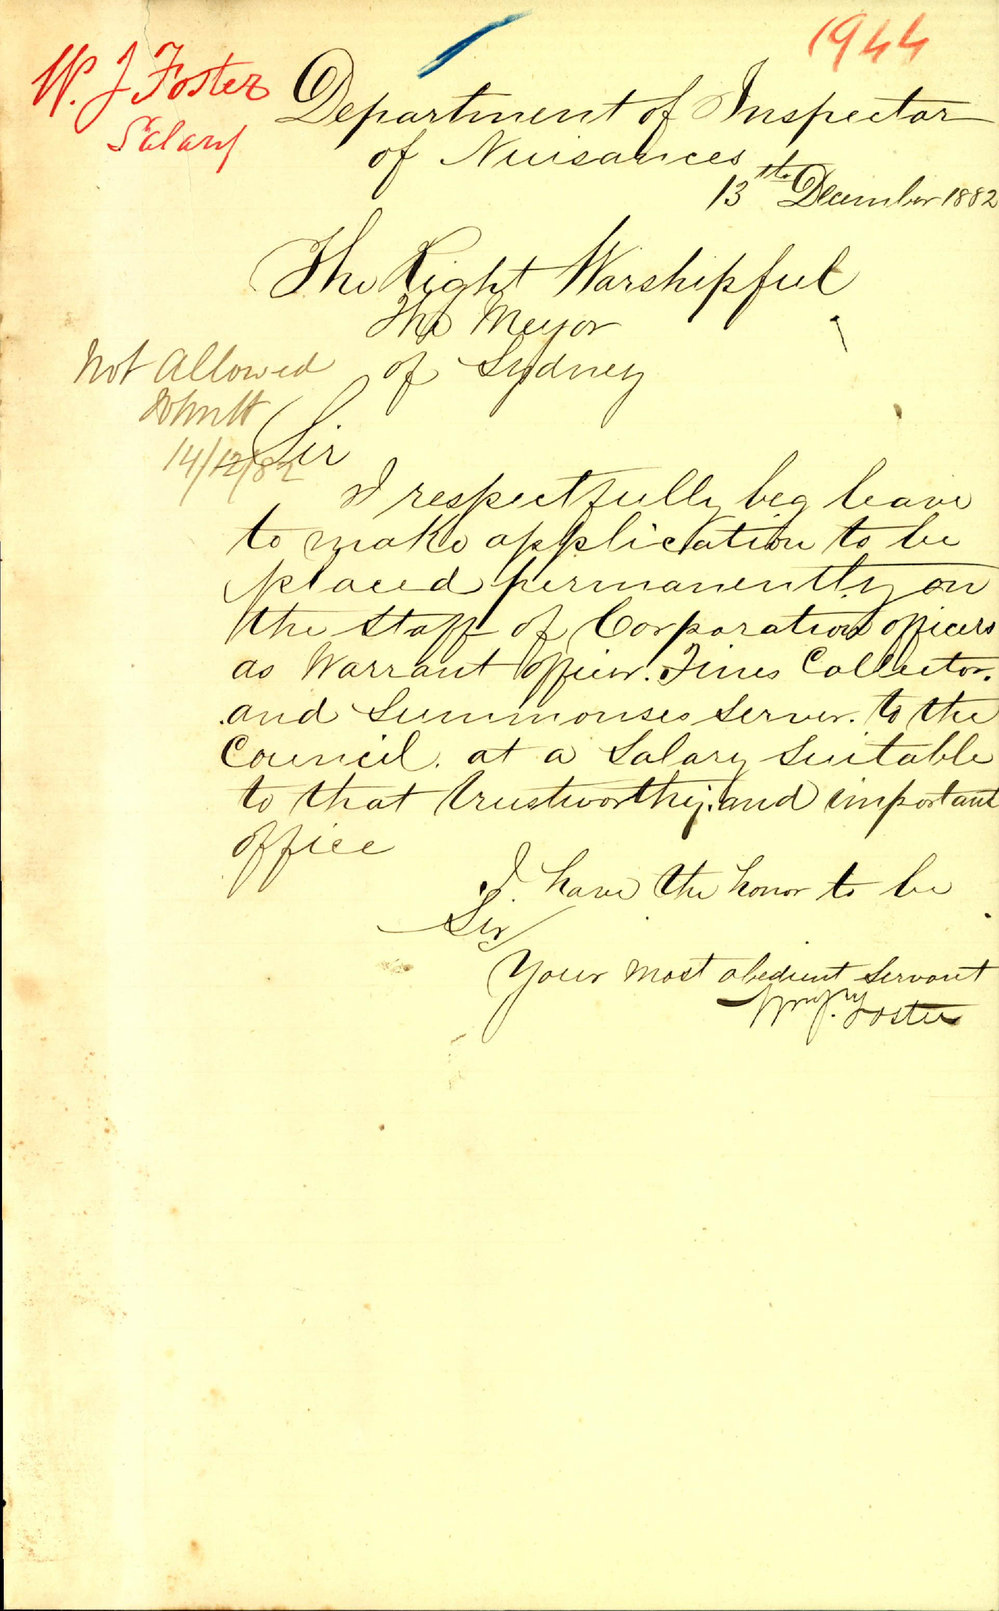 1944
W. J Foster
Salary
Department of Inspector
of Nuisances
13th December 1882
The Right Warshipful
The Meyor
of Sydney
Not Allowed
14/12/82
Sir
I respectfully beg leave
to make application to be
placed permanently on
the Staff of Corporation officers
as Warrant officer. Fines Collector.
and Summonses Server. to the
Council. at a Salary Suitable
to that trustworthy. and important
office
I have the honor to be
Sir
Your most obedient Servant
Wm J. Foster